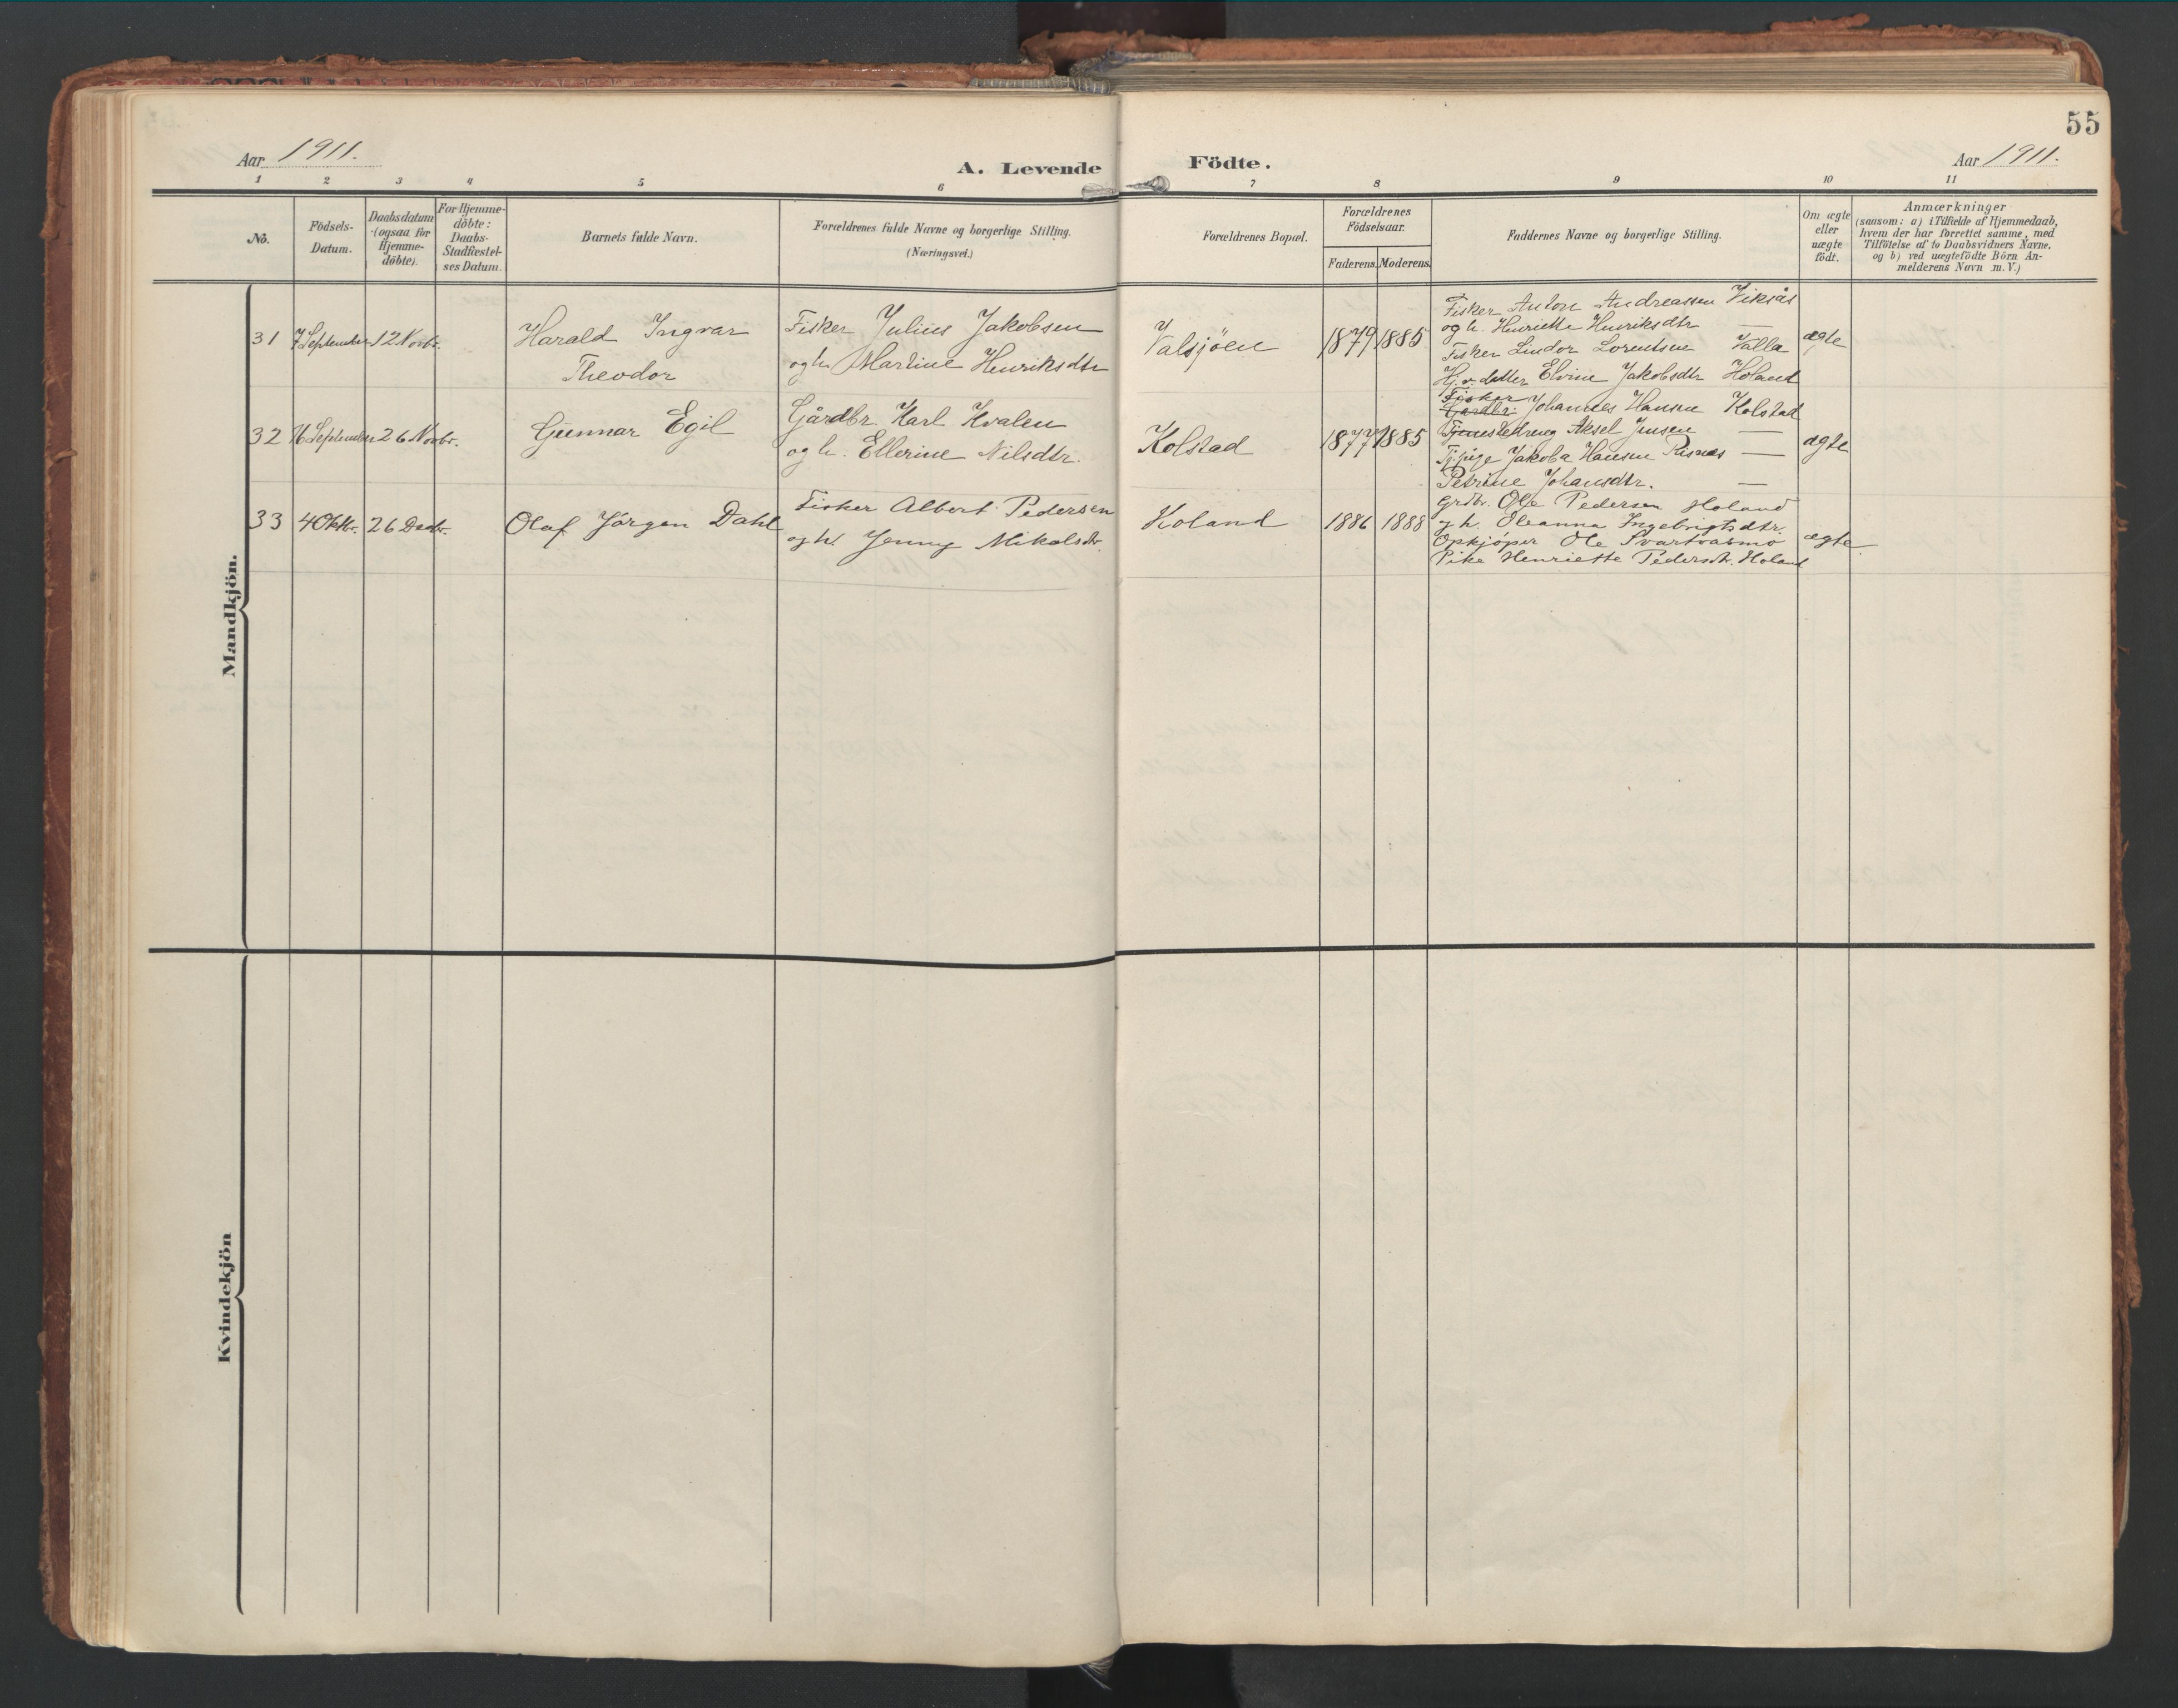 55
Aar 1911.
A. Levende Födte.
Aar 1911.
1 2 3 4 5 6 7 8 9 10 11
No.
Födsels-
Datum.
Daabsdatum
(ogsaa for
Hjemme-
döbte).
For Hjemme-
döbte:
Daabs-
Stadfæstel-
ses Datum.
Barnets fulde Navn.
Forældrenes fulde Navne og borgerlige Stilling.
(Næringsvei.)
Forældrenes Bopæl.
Forældrenes
Födselsaar.
Faderens. Moderens.
Faddernes Navne og borgerlige Stilling.
Om ægte
eller
uægte
födt.
Anmærkninger
(saasom: a) i Tilfælde af Hjemmedaab,
hvem der har forrettet samme, med
Tilföielse af to Daabsvidners Navne,
og b) ved uægtefödte Börn An-
melderens Navn m. V.)
Mandkjön.
31 7 September 12 Novbr.
Harald Ingvar
Theodor
Fisker Julius Jakobsen
og h. Martine Henriksdtr
Valsjöen
1879 1885
Fisker Anton Andreassen Viksås
og h. Henriette Henriksdtr —
Fisker Lindor Lorentsen Valla
Hj.v. datter Elvine Jakobsdtr Holand
ægte
32 16 September 26 Novbr.
Gunnar Egil
Gårdbr. Karl Kvalen
og h. Ellerine Nilsdtr.
Kolstad
1877 1885
Fisker
Gardbr: Johannes Hansen Kolstad
Tjenestedreng Aksel Jensen —
Tj.pige Jakoba Hansen Risnes —
Petrine Johansdtr. —
ægte
33 4 Oktbr. 26 Decbr.
Olaf Jörgen Dahl
Fisker Albert Pedersen
og h. Jenny Mikalsdtr.
Holand
1886 1888
Grdbr. Ole Pedersen Holand
og h. Oleanna Ingebrigtsdtr.
Opkjöper Ole Svartvasmo
Pike Henriette Pedersdtr. Holand
ægte
Kvindekjön